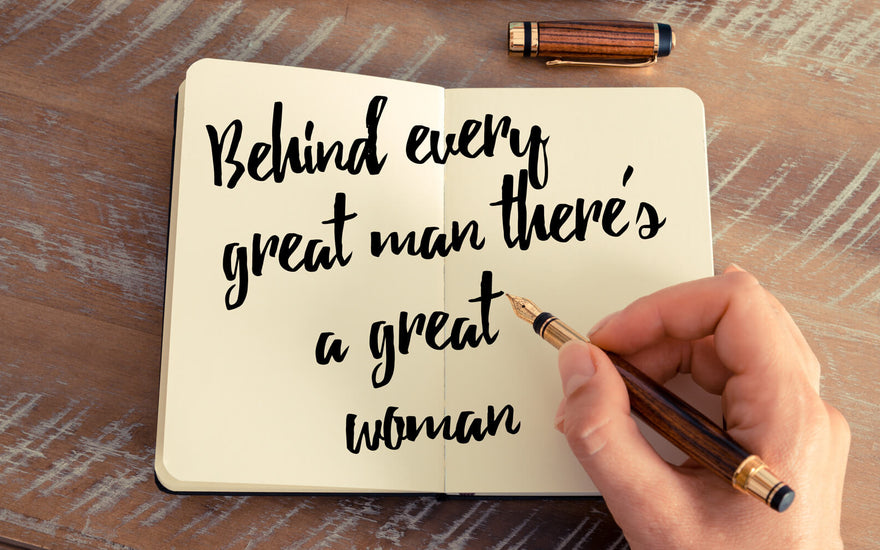 Behind every
great man there's
a great
woman